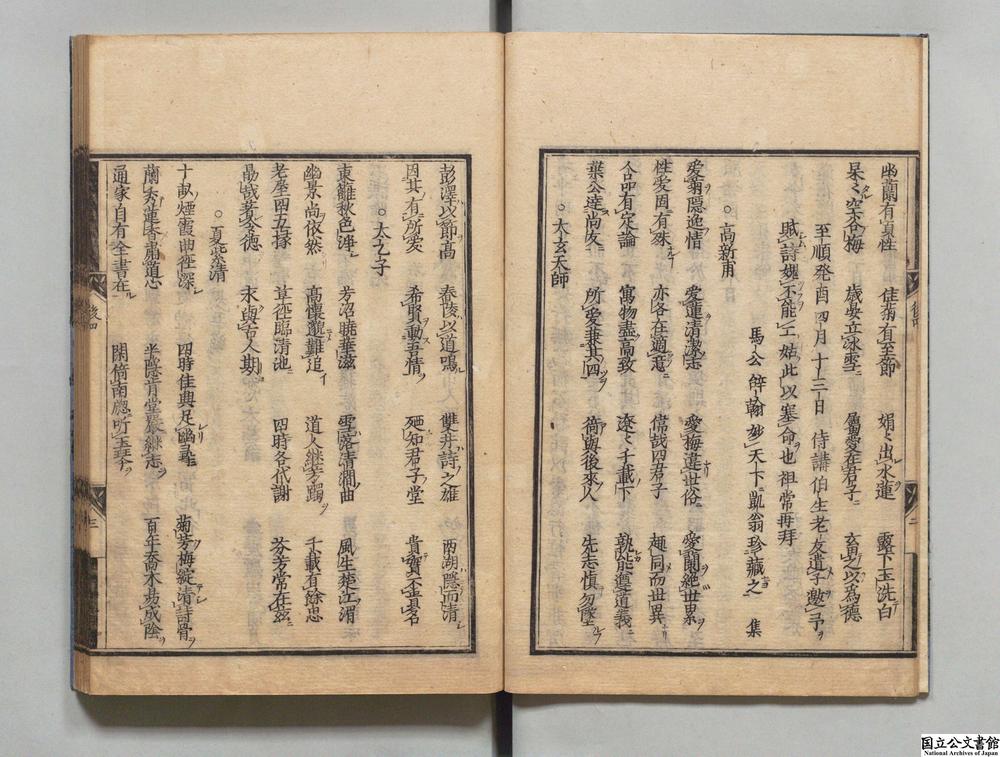 幽蘭有真性 佳菊有至節 娟々出水蓮 露下玉洗白
杲々空谷梅 歳晏立氷雪 屬愛在君子 玄由之以為德
至順癸酉四月十三日 侍講伯生老友遣子邀予
賦詩媿不能工姑此以塞命也祖常再拜
馬公辞翰妙天下凱翁珍藏之 集
○高新甫
愛菊隠逸情 愛蓮清潔志 愛梅違世俗 愛蘭絶世累
性愛固有殊 亦各在適意 偉哉四君子 趣同而世異
人品有定論 寓物盡高致 遼々千載下 孰能遵道義
葉公達尚友 所愛兼其四 猗與後來人 先志慎勿墜
○太玄天師
彭澤以節高 舂陵以道鳴 雙井詩之雄 西湖隠而清
因其有所愛 希賢動吾情 廼知君子堂 貴實不畏名
○太之子
東籬秋色浄 芳沼曉華滋 雪落清澗曲 風生楚江湄
幽景尚依然 高懷邈難追 道人継芳躅 千載有餘忠
老屋四五椽 草徑臨清池 四時各代謝 芬芳常在茲
勗哉耆令德 永與古人期
○夏紫清
十畝煙霞曲徑深 四時佳興足幽尋 菊芳梅綻清詩骨
蘭秀蓮香肅道忠 半隠肯堂嚴継志 百年喬木易成陰
通家自有全書在 閑倚南牕听玉琴
後四
二
後四
三
国立公文書館
National Archives of Japan